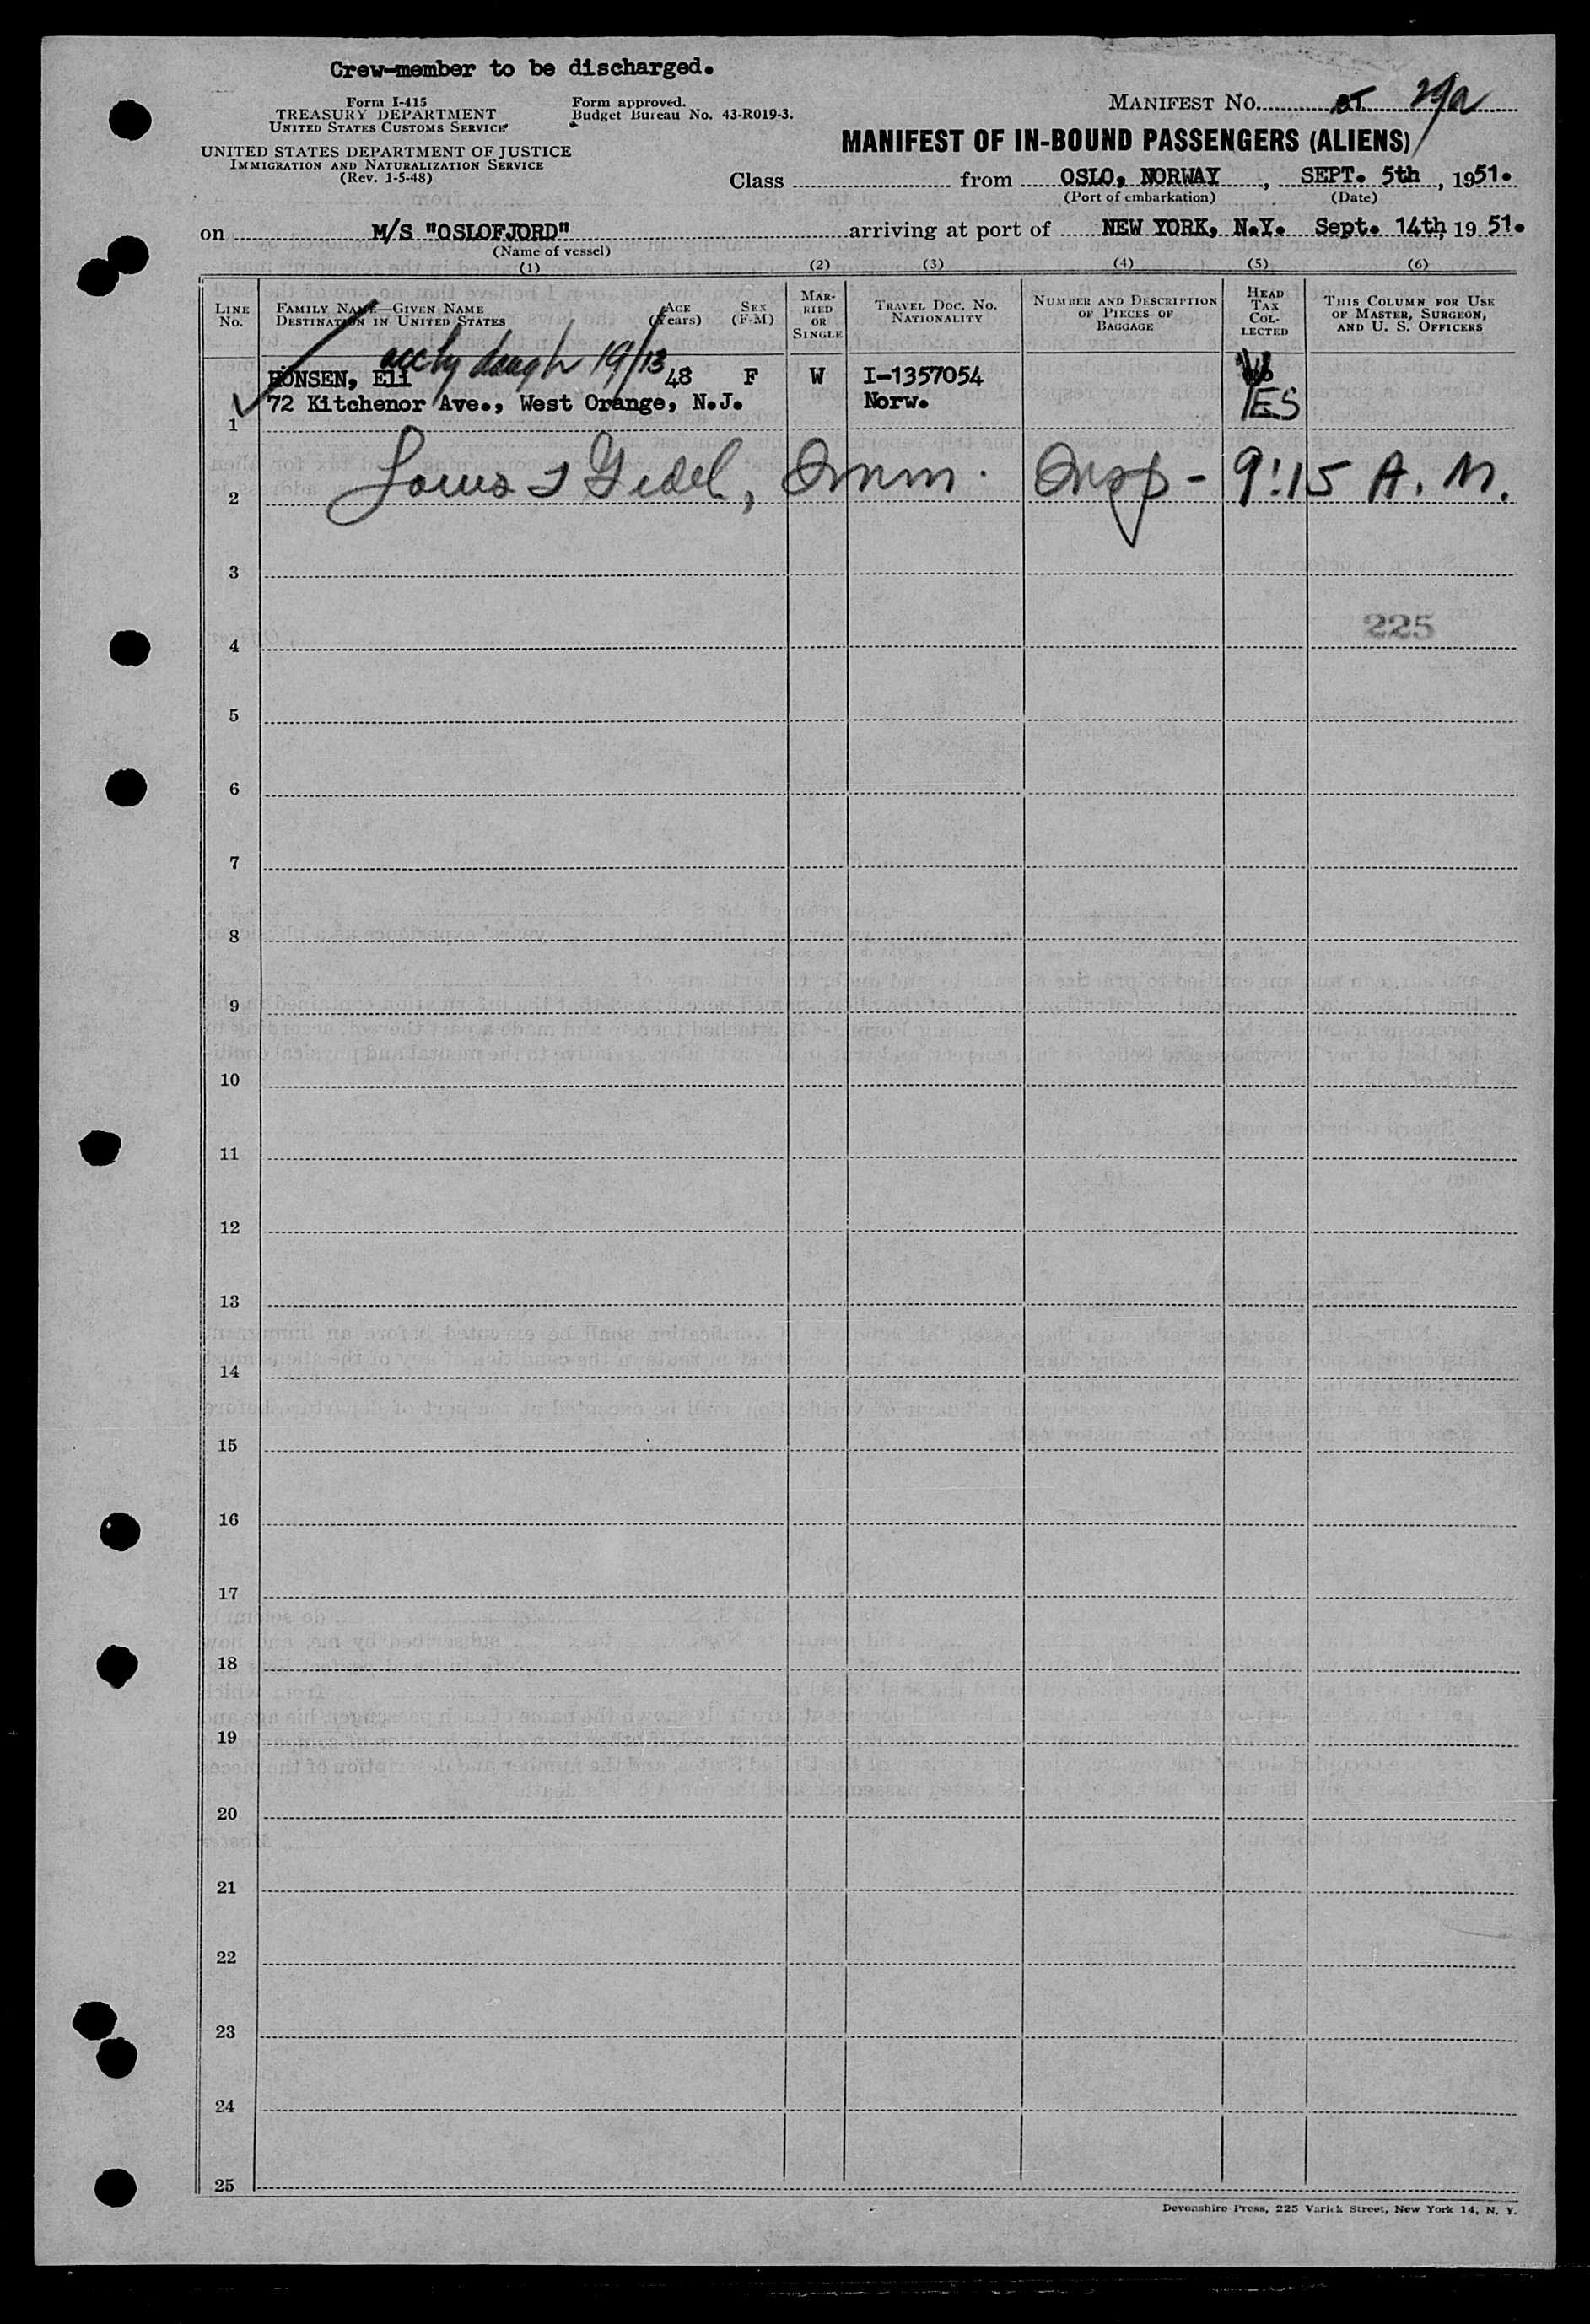 Crew-member to be discharged.
Form I-415
TREASURY DEPARTMENT
UNITED STATES CUSTOMS SERVICE
Form approved.
Budget Bureau No. 43-R019-3.
MANIFEST NO. 29/a
UNITED STATES DEPARTMENT OF JUSTICE
IMMIGRATION AND NATURALIZATION SERVICE
(Rev. 1-5-48)
MANIFEST OF IN-BOUND PASSENGERS (ALIENS)
Class from OSLO, NORWAY, SEPT. 5th, 1951.
(Port of embarkation) (Date)
on M/S "OSLOFJORD" arriving at port of NEW YORK, N.Y. Sept. 14th 19 51.
(Name of vessel)
(1) (2) (3) (4) (5) (6)
LINE No.
FAMILY NAME—GIVEN NAME
DESTINATION IN UNITED STATES
AGE (Years)
SEX (F-M)
MARRIED OR SINGLE
TRAVEL DOC. NO. NATIONALITY
NUMBER AND DESCRIPTION OF PIECES OF BAGGAGE
HEAD TAX COLLECTED
THIS COLUMN FOR USE OF MASTER, SURGEON, AND U. S. OFFICERS
accby daugh 19/13
HONSEN, Eli 48 F W I-1357054
72 Kitchenor Ave., West Orange, N.J. Norw. YES
1
2 Imm. Insp - 9:15 A.M.
3
225
4
5
6
7
8
9
10
11
12
13
14
15
16
17
18
19
20
21
22
23
24
25
Devonshire Press, 225 Varick Street, New York 14, N. Y.